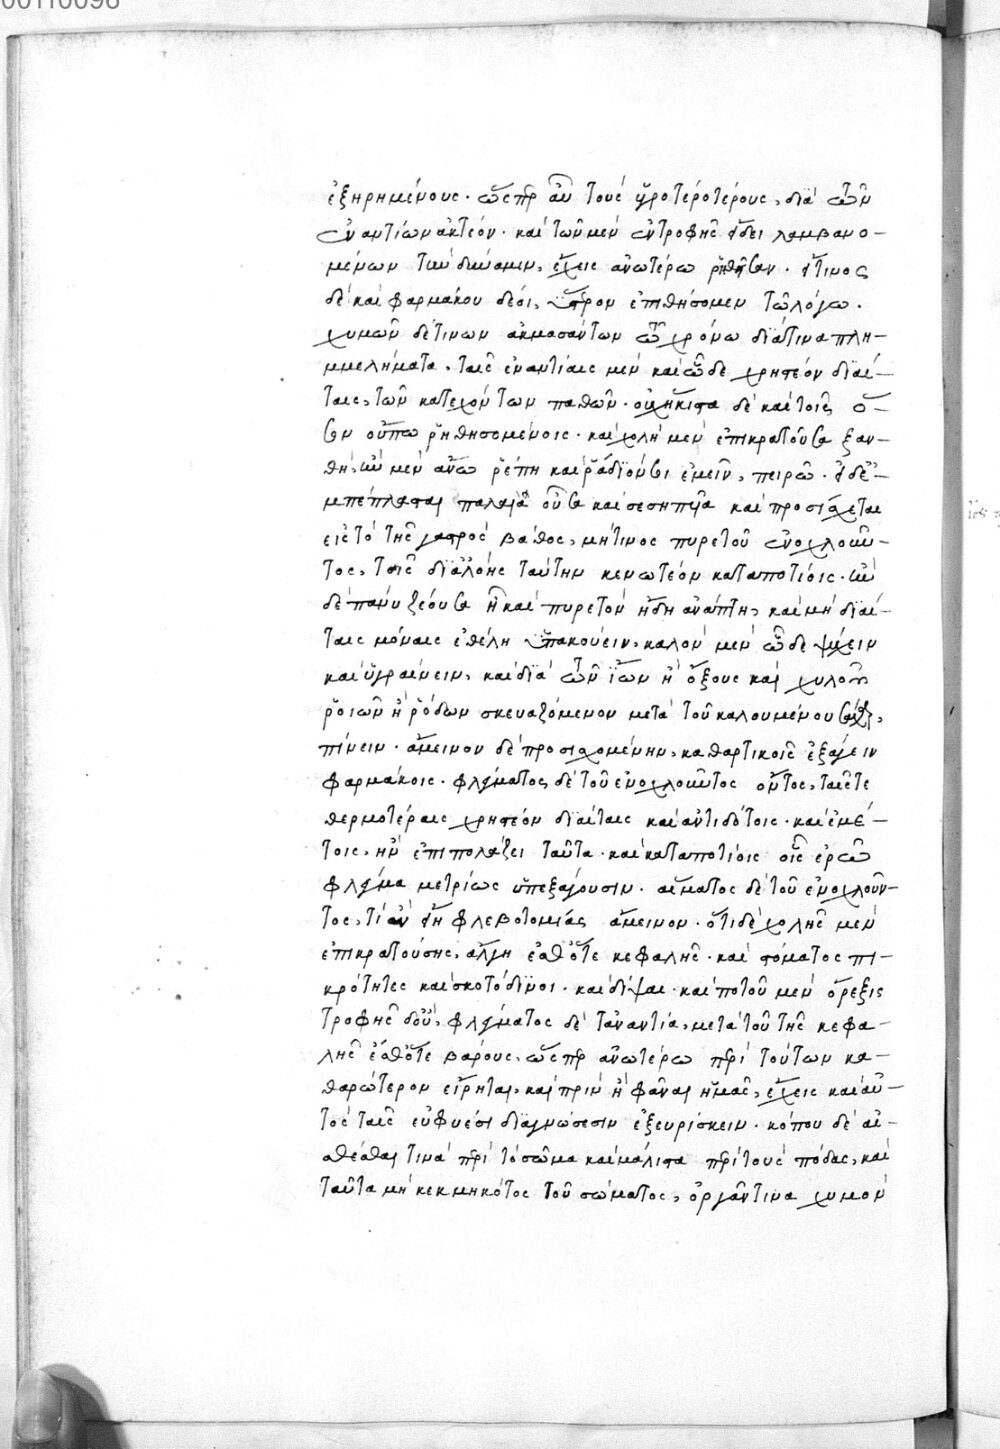 00110098
ἐξηρημένους. ὥσπερ ἂν τοὺς ὑγροτεροτέρους, διὰ τῶν
ἐναντίων ἀκτέον. καὶ τῶν μὲν ἐν τροφῆς εἴδει λαμβανο-
μένων τὴν δύναμιν, ἔχεις ἀνωτέρω ῥηθεῖσαν. εἴ τινος
δὲ καὶ φαρμάκου δέοι, ὕστερον ἐπιθήσομεν τῷ λόγῳ.
χυμῶν δέ τινων ἀκμασάντων τῷ χρόνῳ διά τινα πλη-
μμελήματα, ταῖς ἐναντίαις μὲν καὶ ὧδε χρηστέον διαί-
ταις, τῶν κατεχόντων παθῶν. οὐχ ἥκιστα δὲ καὶ τοῖς
οὔπω ῥηθησομένοις. καὶ χολὴν μὲν ἐπικρατοῦσαν ξαν-
θὴν, ἢν μὲν ἄνω ῥέπῃ καὶ ῥᾳδίουσι ἐμεῖν, πειρῶ. εἰ δ' ἐ-
μπέπλασται παλαιὰ οὖσα καὶ σεσηπυῖα καὶ προσίσχεται
εἰς τὸ τῆς γαστρὸς βάθος, μή τινος πυρετοῦ ἐνοχλοῦν-
τος, τοῖς δι' ἀλόης ταύτην κενωτέον καταποτίοις. ἢν
δὲ πάνυ ζέουσα ἢ καὶ πυρετὸν ἤδη ἀνάπτῃ, καὶ μὴ διαί-
ταις μόναις ἐθέλῃ ὑπακούειν, καλὸν μὲν ὧδε ψύχειν
καὶ ὑγραίνειν, καὶ διὰ τῶν ἴων ἢ ὄξους καὶ χυλοῦ
ῥοιῶν ἢ ῥόδων σκευαζόμενον μετὰ τοῦ καλουμένου
πίνειν. ἄμεινον δὲ προσισχομένην, καθαρτικοῖς ἐξάγειν
φαρμάκοις. φλέγματος δὲ τοῦ ἐνοχλοῦντος ὄντος, ταῖς τε
θερμοτέραις χρηστέον διαίταις καὶ ἀντιδότοις. καὶ ἐμέ-
τοις, ἢν ἐπιπολάζει ταῦτα. καὶ καταποτίοις οἷς ἐρῶ
φλέγμα μετρίως ὑπεξάγουσιν. αἵματος δὲ τοῦ ἐνοχλοῦν-
τος, τί ἂν εἴη φλεβοτομίας ἄμεινον. ὅτι δὲ χολῆς μὲν
ἐπικρατούσης, ἄλγη ἔσθ' ὅτε κεφαλῆς. καὶ στόματος πι-
κρότητες καὶ σκοτόδινοι. καὶ δίψαι. καὶ ποτοῦ μὲν ὄρεξις
τροφῆς δ' οὔ, φλέγματος δὲ τἀναντία, μετὰ τοῦ τῆς κεφα-
λῆς ἔσθ' ὅτε βάρους, ὥσπερ ἀνωτέρω περὶ τούτων κα-
θαρώτερον εἴρηται, καὶ πρὶν ἢ φᾶναι ἡμᾶς, ἔχεις καὶ αὐ-
τὸς ταῖς εὐφυέσι διαγνώσεσιν ἐξευρίσκειν. κόπου δὲ αἰ-
σθέσθαι τινὰ περὶ τὸ σῶμα καὶ μάλιστα περὶ τοὺς πόδας, καὶ
ταῦτα μὴ κεκμηκότος τοῦ σώματος, ὀργᾶν τινα χυμὸν